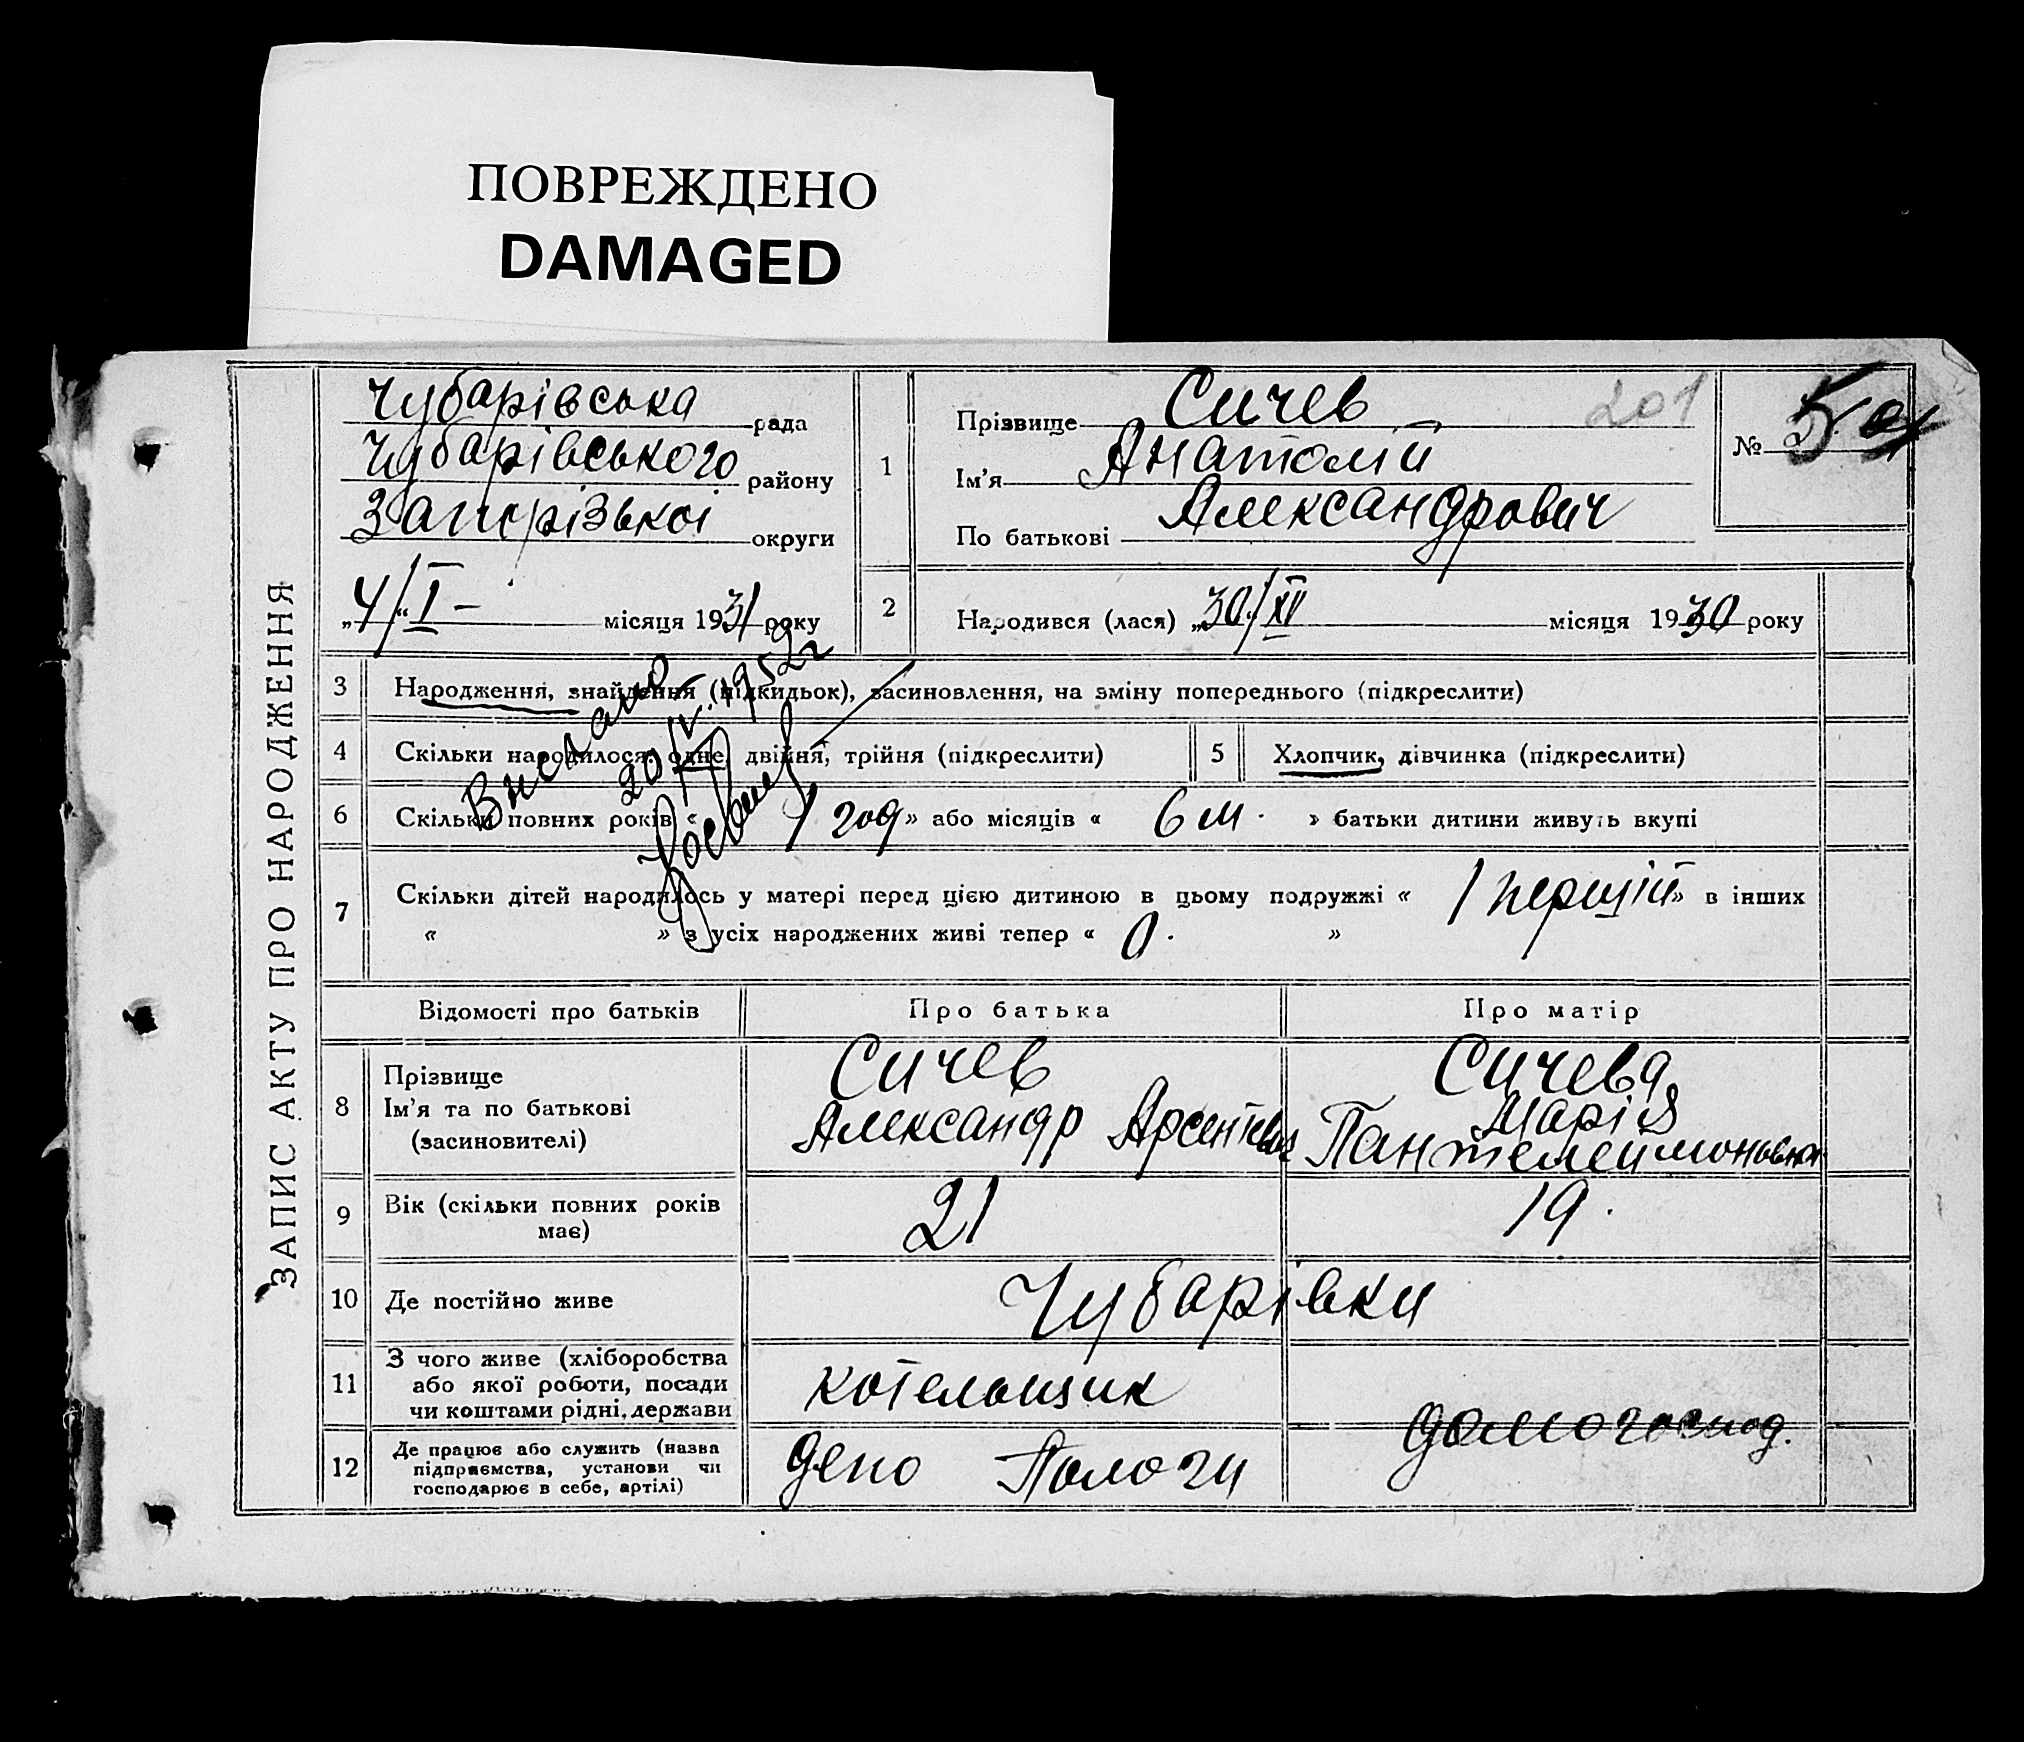 ПОВРЕЖДЕНО
DAMAGED
ЗАПИС АКТУ ПРО НАРОДЖЕННЯ
Чубарівська рада
Чубарівського району
Запорізької округи
„4/“ I – місяця 1931 року
1 Прізвище Сичев 201
Ім'я Анатолій
По батькові Александрович
№ 5
2 Народився (лася) „30/XII місяця 1930 року
3 Народження, знайдення (підкидьок), засиновлення, на зміну попереднього (підкреслити)
4 Скільки народилося: одне, двійня, трійня (підкреслити)
5 Хлопчик, дівчинка (підкреслити)
Выслано
20/V. 1952 г
6 Скільки повних років « 1 год » або місяців « 6 м. » батьки дитини живуть вкупі
7 Скільки дітей народилось у матері перед цією дитиною в цьому подружжі « 1 перший » в інших
« » з усіх народжених живі тепер « 0. »
Відомості про батьків Про батька Про матір
8 Прізвище
Ім'я та по батькові
(засиновителі)
Сичев
Александр Арсентієв
Сичева
Марія
Пантелеймоновна
9 Вік (скільки повних років
має)
21 19.
10 Де постійно живе Чубарівки
11 З чого живе (хліборобства
або якої роботи, посади
чи коштами рідні, держави
котельщик
домогоспод.
12 Де працює або служить (назва
підприємства, установи чи
господарює в себе, артілі)
депо Пологи